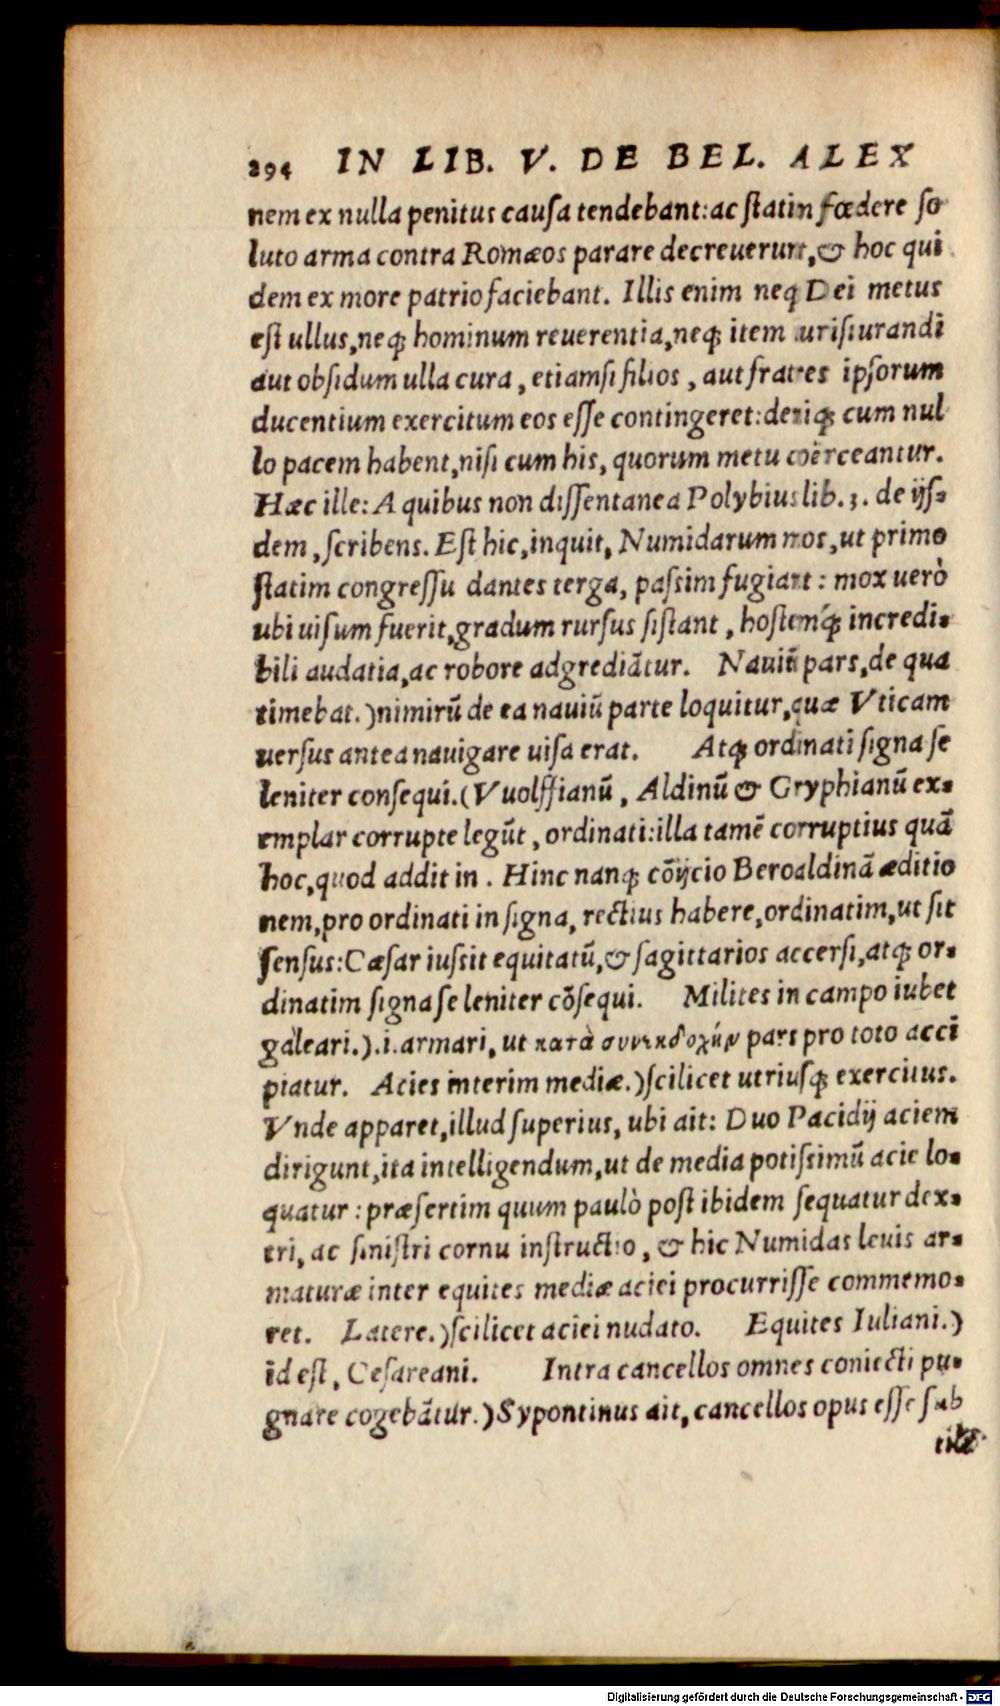 294 IN LIB. V. DE BEL. ALEX
nem ex nulla penitus causa tendebant: ac statim fœdere so
luto arma contra Romæos parare decreuerunt, & hoc qui
dem ex more patrio faciebant. Illis enim neq; Dei metus
est ullus, neq; hominum reuerentia, neq; item iurisiurandi
aut obsidum ulla cura, etiamsi filios, aut fratres ipsorum
ducentium exercitum eos esse contingeret: deniq; cum nul
lo pacem habent, nisi cum his, quorum metu coërceantur.
Hæc ille: A quibus non dissentanea Polybius lib. 3. de ijs-
dem, scribens. Est hic, inquit, Numidarum mos, ut primo
statim congressu dantes terga, passim fugiant: mox uerò
ubi uisum fuerit, gradum rursus sistant, hostemq́; incredi-
bili audatia, ac robore adgrediātur. Nauiū pars, de qua
timebat.) nimirū de ea nauiū parte loquitur, quæ Vticam
uersus antea nauigare uisa erat. Atq; ordinati signa se
leniter consequi. (Vuolffianū, Aldinū & Gryphianū ex-
emplar corrupte legūt, ordinati: illa tamē corruptius quā
hoc, quod addit in. Hinc nanq; cōijcio Beroaldinā æditio
nem, pro ordinati in signa, rectius habere, ordinatim, ut sit
sensus: Cæsar iussit equitatū, & sagittarios accersi, atq; or-
dinatim signa se leniter cōsequi. Milites in campo iubet
galeari.) .i. armari, ut κατὰ συνεκδοχήν pars pro toto acci
piatur. Acies interim mediæ.) scilicet utriusq; exercitus.
Vnde apparet, illud superius, ubi ait: Duo Pacidij aciem
dirigunt, ita intelligendum, ut de media potissimū acie lo-
quatur: præsertim quum paulò post ibidem sequatur dex-
tri, ac sinistri cornu instructio, & hic Numidas leuis ar-
maturæ inter equites mediæ aciei procurrisse commemo-
ret. Latere.) scilicet aciei nudato. Equites Iuliani.)
id est, Cesareani. Intra cancellos omnes coniecti pu-
gnare cogebātur.) Sypontinus ait, cancellos opus esse sub
Digitalisierung gefördert durch die Deutsche Forschungsgemeinschaft - DFG